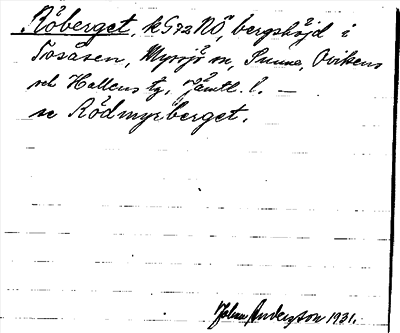 Röberget, k G 72 NÖ, bergshöjd i
Trosåsen, Myssjö m, Sunne, Ovikens
och Hallens tg, Jämtl. l. —
se Rödmyrberget.
Johan Anderzson 1931.